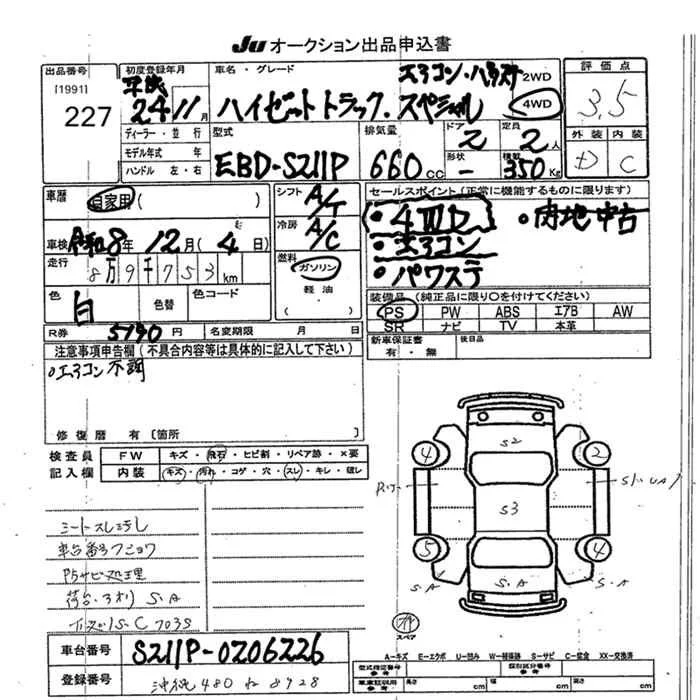 JU オークション出品申込書
出品番号
[1991]
227
初度登録年月
平成
24 11月
ディーラー・並行
モデル年式 年
ハンドル 左・右
車名・グレード
エアコン・ハウステ
ハイゼットトラック.スペシャル
2WD
4WD
型式
EBD-S211P
排気量
660 cc
ドア
2
形状
-
定員
2人
積載
350 Kg
評価点
3.5
外装 内装
D C
車歴
自家用 ( )
車検 令和8年 12月 ( 4日)
走行
8万9千753 km
色
白
色替
色コード
R券 5190円
名変期限 月 日
シフト
A/T
冷房
A/C
燃料
ガソリン
軽油
( )
セールスポイント (正常に機能するものに限ります)
・4WD ・内地中古
・エアコン
・パワステ
装備品 (純正品に限り○を付けてください)
PS PW ABS エアB AW
SR ナビ TV 本革
新車保証書
有・無
後日品
注意事項申告欄 (不具合内容等は具体的に記入して下さい)
・エアコン不調
修復歴 有 〔箇所
検査員
記入欄
FW キズ・飛石・ヒビ割・リペア跡・×要
内装 キズ・汚れ・コゲ・穴・スレ・キレ・破レ
シートスレ汚し
車台番号フショク
防サビ処理
荷台・アオリ S.A
S2
S3
4
2
5
4
S.A
S.A
S.A
S.A
スペア
A=キズ E=エクボ U=凹み W=補修跡 S=サビ C=腐食 XX=交換済
車台番号
S211P-0206226
登録番号
沖縄480 ね 8928
型式指定番号
参考
類別区分番号
参考
車車証収用
参考
長さ cm
幅 cm
高さ cm